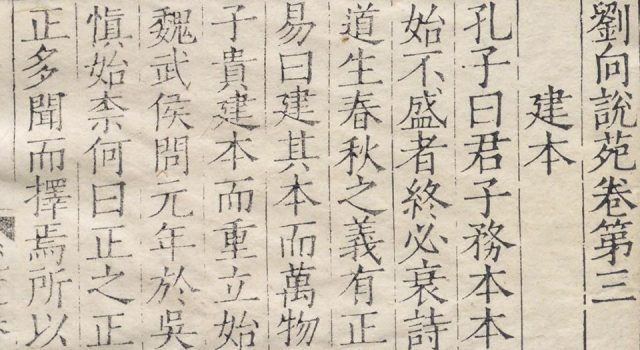 劉向說苑卷第三
建本
孔子曰君子務本本
始不盛者終必衰詩
道生春秋之義有正
易曰建其本而萬物
子貴建本而重立始
魏武侯問元年於吳
愼始柰何曰正之正
正多聞而擇焉所以